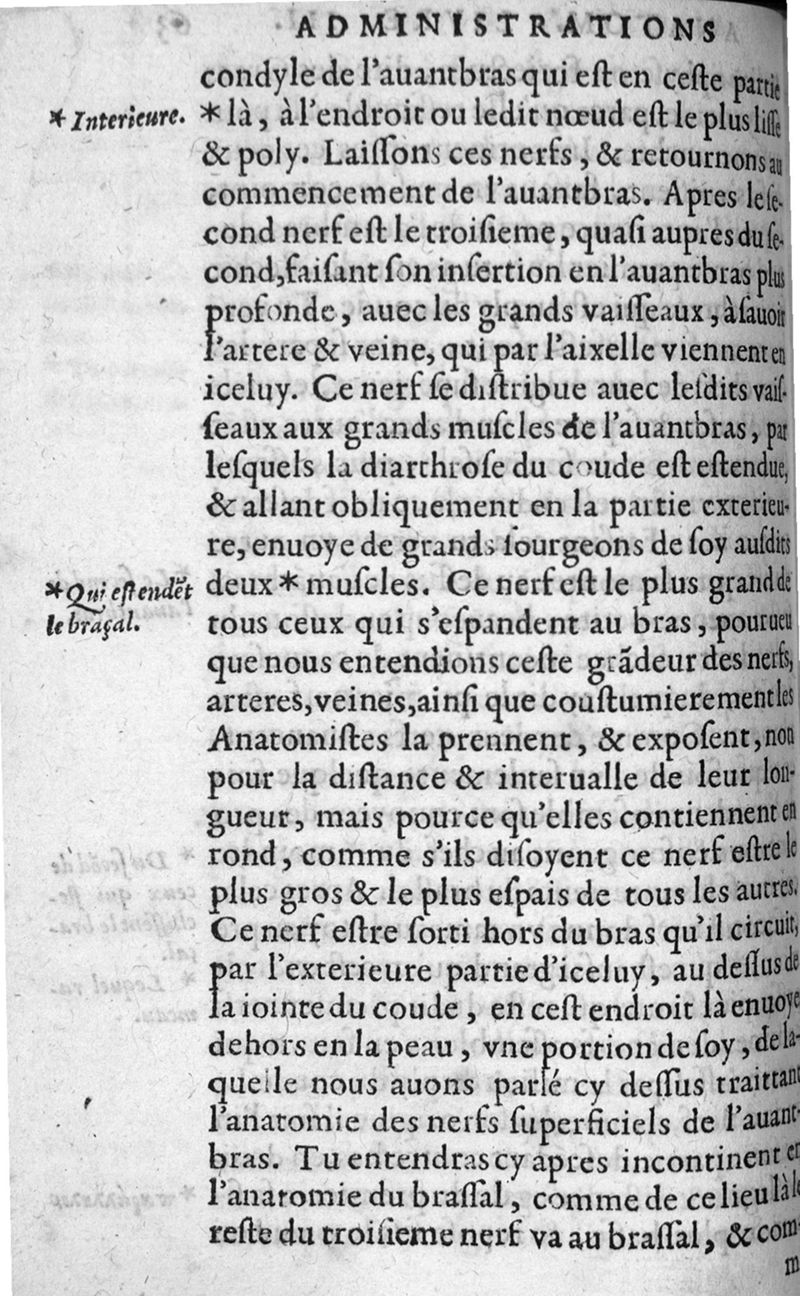 ADMINISTRATIONS
condyle de l'auantbras qui eſt en ceſte partie
*Interieure.
* là, à l'endroit ou ledit nœud eſt le plus liſſe
& poly. Laiſſons ces nerfs, & retournons au
commencement de l'auantbras. Apres le ſe-
cond nerf eſt le troiſieme, quaſi aupres du ſe-
cond, faiſant ſon inſertion en l'auantbras plus
profonde, auec les grands vaiſſeaux, à ſauoir
l'artere & veine, qui par l'aixelle viennent en
iceluy. Ce nerf ſe diſtribue auec leſdits vaiſ-
ſeaux aux grands muſcles de l'auantbras, par
leſquels la diarthroſe du coude eſt eſtendue,
& allant obliquement en la partie exterieu-
re, enuoye de grands ſourgeons de ſoy auſdits
*Qui eſtendēt
le braçal.
deux * muſcles. Ce nerf eſt le plus grand de
tous ceux qui s'eſpandent au bras, pourueu
que nous entendions ceſte grãdeur des nerfs,
arteres, veines, ainſi que couſtumierement les
Anatomiſtes la prennent, & expoſent, non
pour la diſtance & interualle de leur lon-
gueur, mais pource qu'elles contiennent en
rond, comme s'ils diſoyent ce nerf eſtre le
plus gros & le plus eſpais de tous les autres.
Ce nerf eſtre ſorti hors du bras qu'il circuit,
par l'exterieure partie d'iceluy, au deſſus de
la iointe du coude, en ceſt endroit là enuoye
dehors en la peau, vne portion de ſoy, de la-
quelle nous auons parlé cy deſſus traittant
l'anatomie des nerfs ſuperficiels de l'auant-
bras. Tu entendras cy apres incontinent en
l'anatomie du braſſal, comme de ce lieu là le
reſte du troiſieme nerf va au braſſal, & com-
m